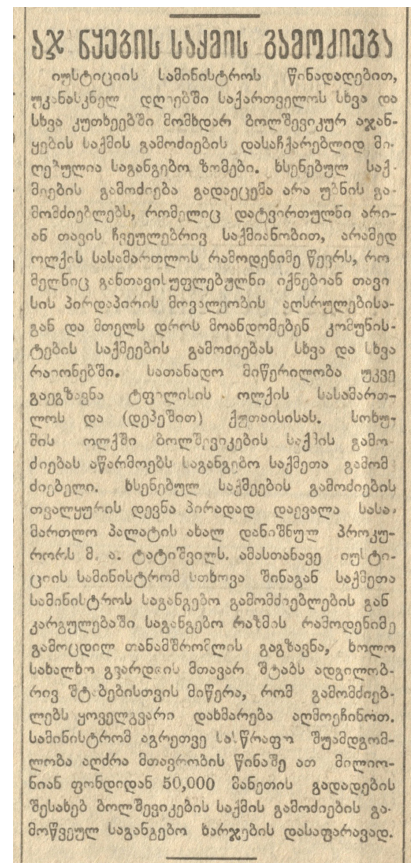 აჯ ნყების საქმის გამოძიება
იუსტიციის სამინისტროს წინადადებით,
უკანასკნელ დღეებში საქართველოს სხვა და
სხვა კუთხეებში მომხდარ ბოლშევიკურ აჯან-
ყების საქმის გამოძიების დასაჩქარებლად მი-
ღებულია საგანგებო ზომები. ხსენებულ საქ-
მეების გამოძიება გადაეცემა არა უბნის გა-
მომძიებლებს, რომელიც დატვირთულნი არი-
ან თავის ჩვეულებრივ საქმიანობით, არამედ
ოლქის სასამართლოს რამოდენიმე წევრს, რო
მელნიც განთავისუფლებულნი იქნებიან თავი
სის პირდაპირის მოვალეობის აღსრულებისა-
გან და მთელს დროს მოანდომებენ კომუნის-
ტების საქმეების გამოძიებას სხვა და სხვა
რაიონებში. სათანადო მიწერილობა უკვე
გაეგზავნა ტფილისის ოლქის სასამართ-
ლოს და (დეპეშით) ქუთაისისას. სოხუ-
მის ოლქში ბოლშევიკების საქმის გამო-
ძიებას აწარმოებს საგანგებო საქმეთა გამომ
ძიებელი. ხსენებულ საქმეების გამოძიების
თვალყურის დევნა პირადად დაევალა სასა-
მართლო პალატის ახალ დანიშნულ პროკუ-
რორს მ. ა. ტატიშვილს. ამასთანავე იუსტი-
ციის სამინისტრომ სთხოვა შინაგან საქმეთა
სამინისტროს საგანგებო გამომძიებლების გან
კარგულებაში საგანგებო რაზმის რამოდენიმე
გამოცდილ თანამშრომლის გაგზავნა, ხოლო
სახალხო გვარდიის მთავარ შტაბს ადგილობ-
რივ შტაბებისთვის მიწერა, რომ გამომძიებ-
ლებს ყოველგვარი დახმარება აღმოეჩინოთ.
სამინისტრომ აგრეთვე სასწრაფო შუამდგომ-
ლობა აღძრა მთავრობის წინაშე ათ მილიო-
ნიან ფონდიდან 50,000 მანეთის გადადების
შესახებ ბოლშევიკების საქმის გამოძიების გა-
მოწვეულ საგანგებო ხარჯების დასაფარავად.